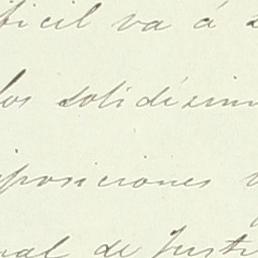 ficil va á
los solidésim
posiciones
nal de Justi